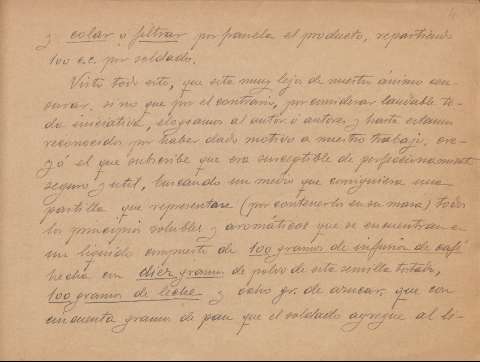 y colar o filtrar por franela el producto, repartiendo
100 c.c. por soldado.
Visto todo esto, que esta muy lejos de nuestro ánimo cen-
surar, si no que por el contrario, por considerar laudable to-
da iniciativa, elogiamos al autor ó autores y hasta estamos
reconocidos por haber dado motivo a nuestro trabajo, cre-
yó el que subscribe que era susceptible de perfeccionamiento
seguro y util, buscando un medio que consiguiera una
pastilla que representase (por contenerlos en su masa) todos
los principios solubles y aromáticos que se encuentran en
un liquido compuesto de 100 gramos de infusion de café
hecha con diez gramos de polvo de esta semilla tostada,
100 gramos de leche y ocho gr. de azucar, que con
cincuenta gramos de pan que el soldado agregue al li-